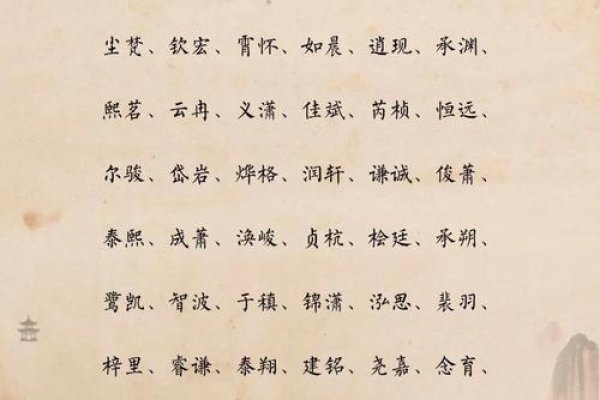 尘梵、钦宏、霄怀、如晨、逍现、承渊、
熙茗、云冉、义潇、佳斌、芮桢、恒远、
尔骏、岱岩、烨格、润轩、谦诚、俊萧、
泰熙、成萧、涣峻、贞杭、桧廷、承朔、
鹭凯、智波、于稹、锦潇、泓思、裴羽、
梓里、睿谦、泰翔、建铭、尧嘉、念育、